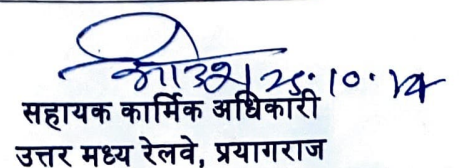 25.10.24
सहायक कार्मिक अधिकारी
उत्तर मध्य रेलवे, प्रयागराज